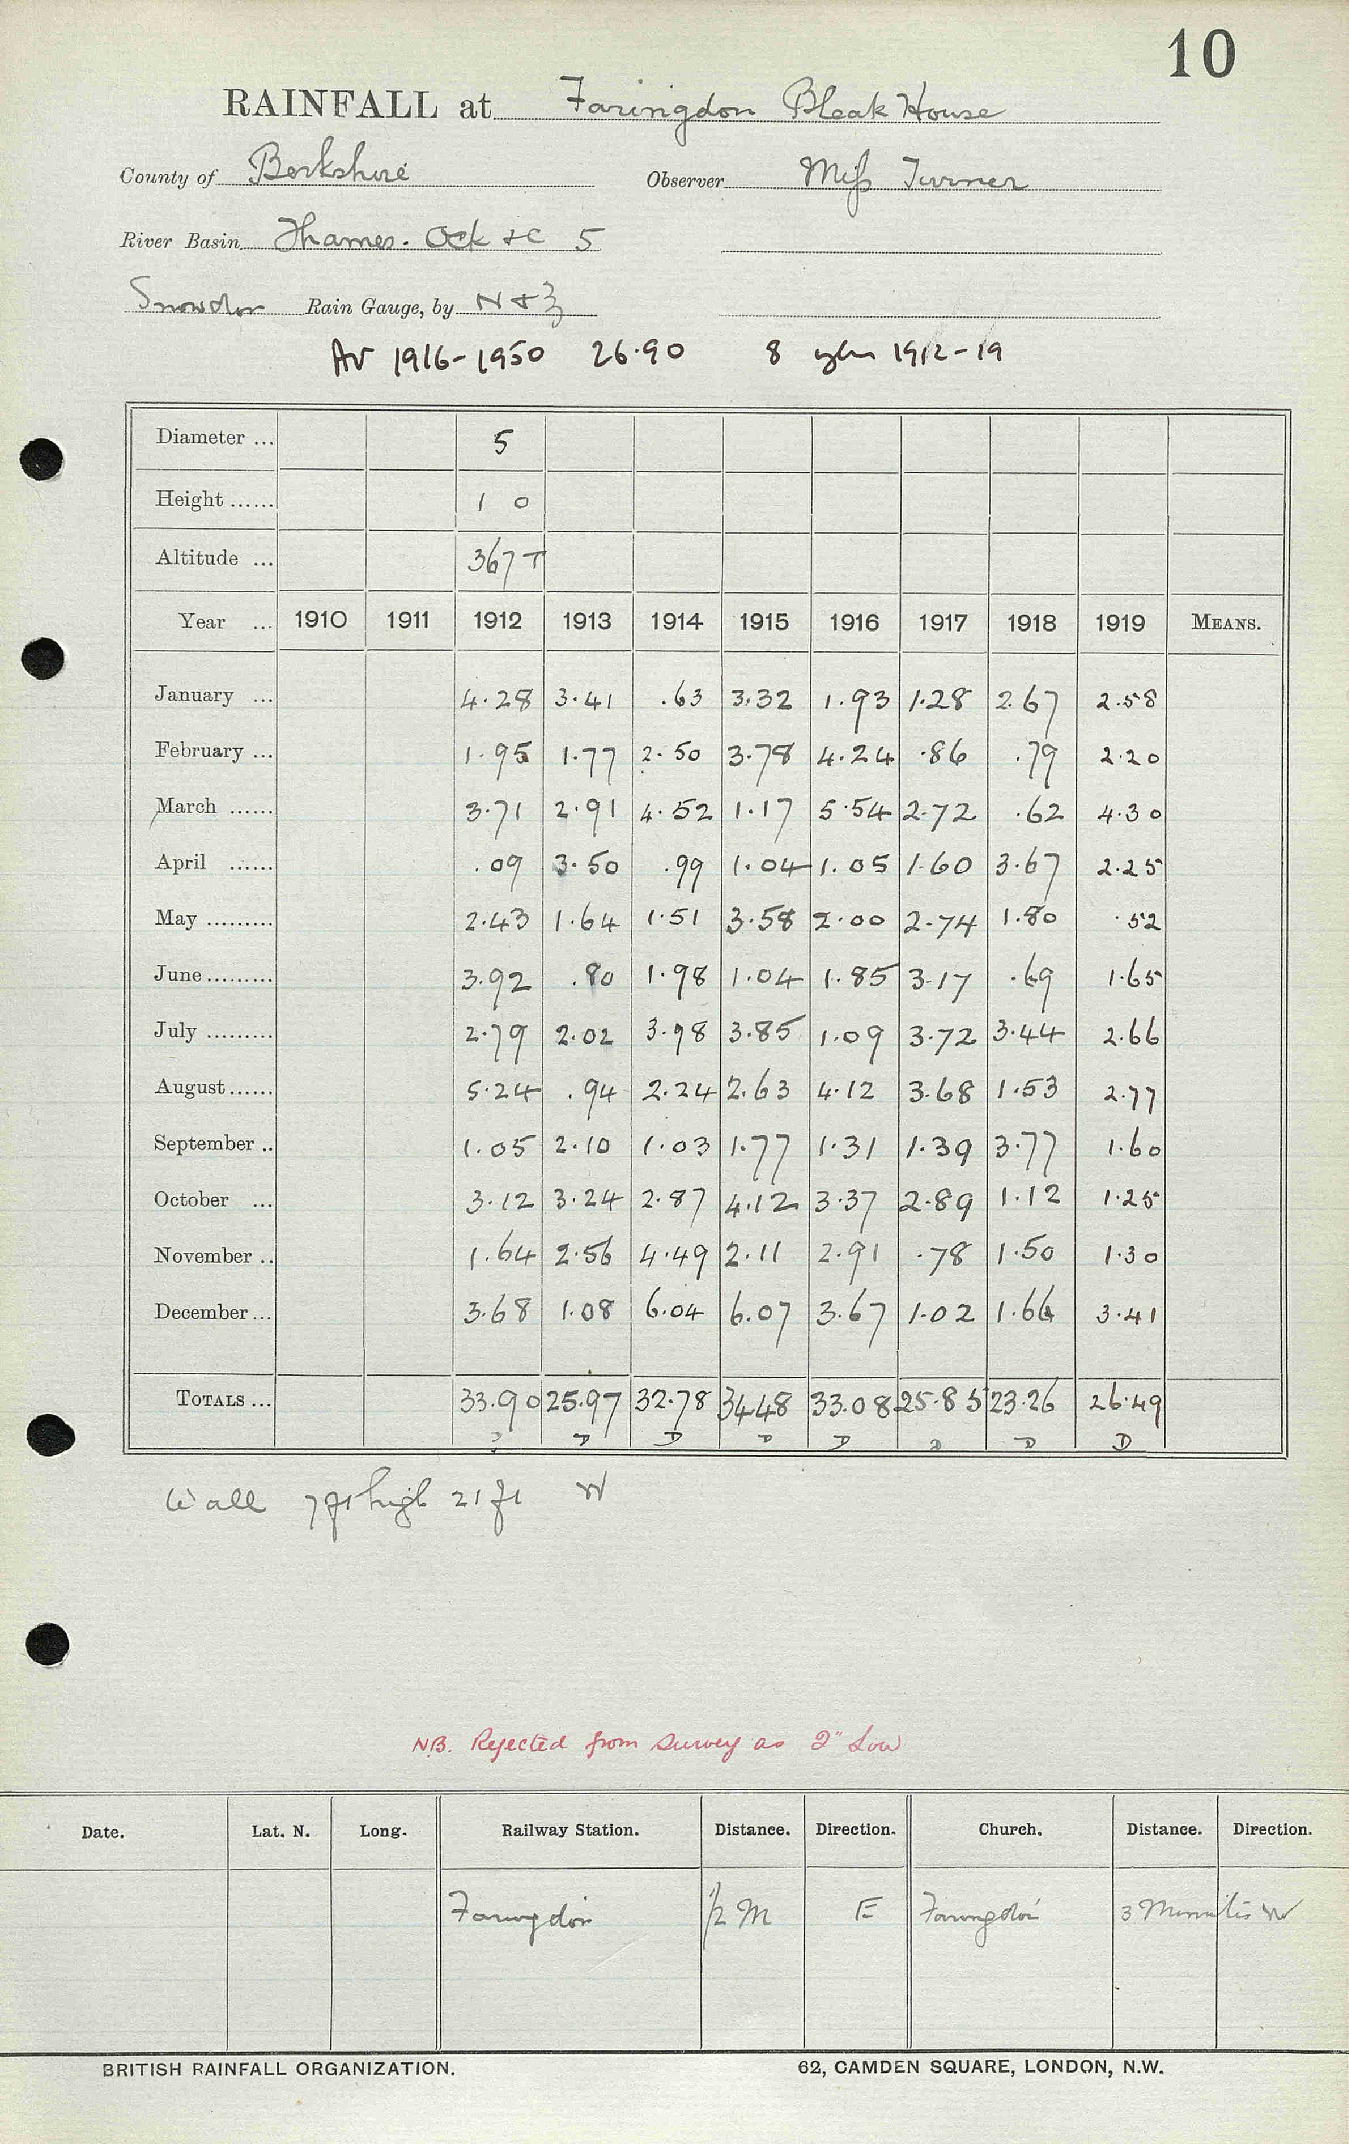 10
RAINFALL at Faringdon Bleak House
County of Berkshire Observer Miss Turner
River Basin Thames. Ock &c 5
Snowdon Rain Gauge, by N & Z
Av 1916-1950 26.90 8 1912-19
Diameter ... 5
Height ...... 1 0
Altitude ... 367 T
Year ... 1910 1911 1912 1913 1914 1915 1916 1917 1918 1919 MEANS.
January ... 4.28 3.41 .63 3.32 1.93 1.28 2.67 2.58
February ... 1.95 1.77 2.50 3.78 4.24 .86 .79 2.20
March ...... 3.71 2.91 4.52 1.17 5.54 2.72 .62 4.30
April ...... .09 3.50 .99 1.04 1.05 1.60 3.67 2.25
May ......... 2.43 1.64 1.51 3.58 2.00 2.74 1.80 .52
June ......... 3.92 .80 1.98 1.04 1.85 3.17 .69 1.65
July ......... 2.79 2.02 3.98 3.85 1.09 3.72 3.44 2.66
August ...... 5.24 .94 2.24 2.63 4.12 3.68 1.53 2.77
September .. 1.05 2.10 1.03 1.77 1.31 1.39 3.77 1.60
October ... 3.12 3.24 2.87 4.12 3.37 2.89 1.12 1.25
November .. 1.64 2.56 4.49 2.11 2.91 .78 1.50 1.30
December ... 3.68 1.08 6.04 6.07 3.67 1.02 1.66 3.41
TOTALS ... 33.90 25.97 32.78 34.48 33.08 25.85 23.26 26.49
D D D D D D D D
Wall 7ft high 21 ft W
N.B. Rejected from survey as 2" Low
Date. Lat. N. Long. Railway Station. Distance. Direction. Church. Distance. Direction.
Faringdon 1/2 M E Faringdon 3 Minutes W
BRITISH RAINFALL ORGANIZATION. 62, CAMDEN SQUARE, LONDON, N.W.